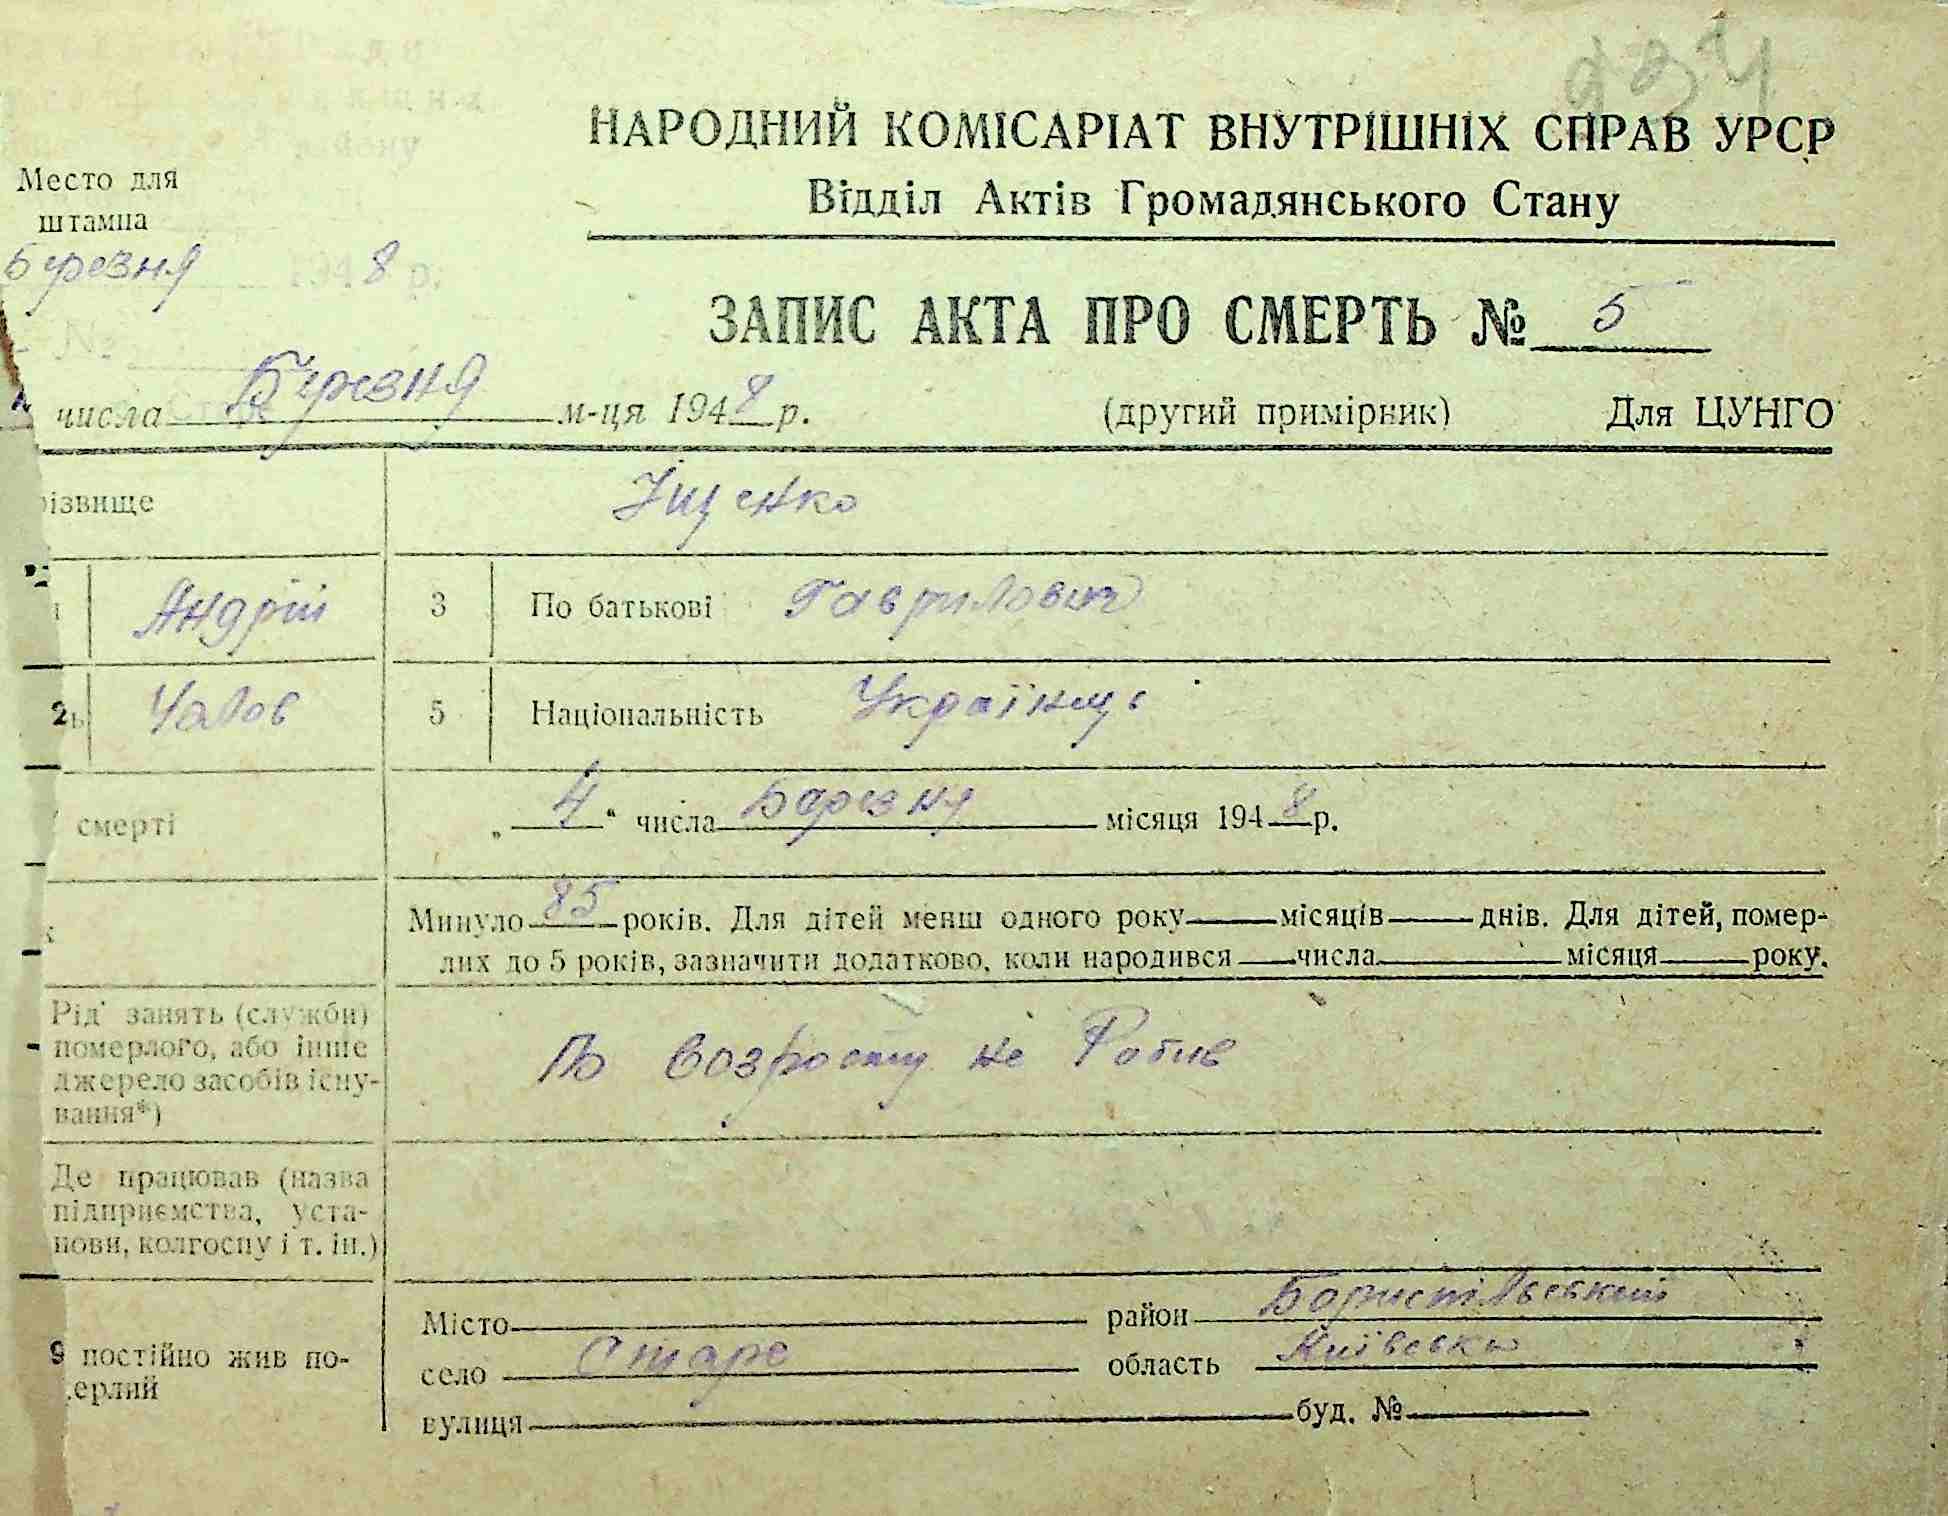 НАРОДНИЙ КОМІСАРІАТ ВНУТРІШНІХ СПРАВ УРСР
Відділ Актів Громадянського Стану
Место для
штампа
району
Березня 1948 р.
№
ЗАПИС АКТА ПРО СМЕРТЬ № 5
числа Березня м-ця 1948 р. (другий примірник) Для ЦУНГО
різвище Іщенко
Андрій 3 По батькові Гаврилович
Чолов 5 Національність Українець
смерті „4“ числа Березня місяця 1948 р.
Минуло 85 років. Для дітей менш одного року місяців днів. Для дітей, помер-
лих до 5 років, зазначити додатково, коли народився числа місяця року.
Рід занять (служби)
померлого, або інше
джерело засобів існу-
вання*)
По возросту не Робив
Де працював (назва
підприємства, уста-
нови, колгоспу і т. ін.)
Місто район Бориспільський
9 постійно жив по-
ерлий
село Старе область Київська
вулиця буд. №